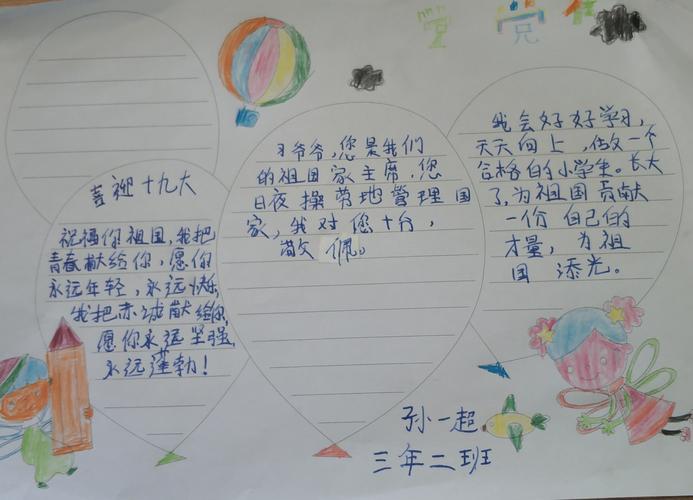 喜迎十九大
祝福你祖国,我把
青春献给你,愿你
永远年轻,永远快乐,
我把赤诚献给你,
愿你永远坚强,
永远蓬勃!
习爷爷,您是我们
的祖国家主席,您
日夜操劳地管理国
家,我对您十分,
敬佩。
我会好好学习,
天天向上,做一个
合格的小学生。长大
了,为祖国贡献
一份自己的
力量,为祖
国添光。
孙一超
三年二班